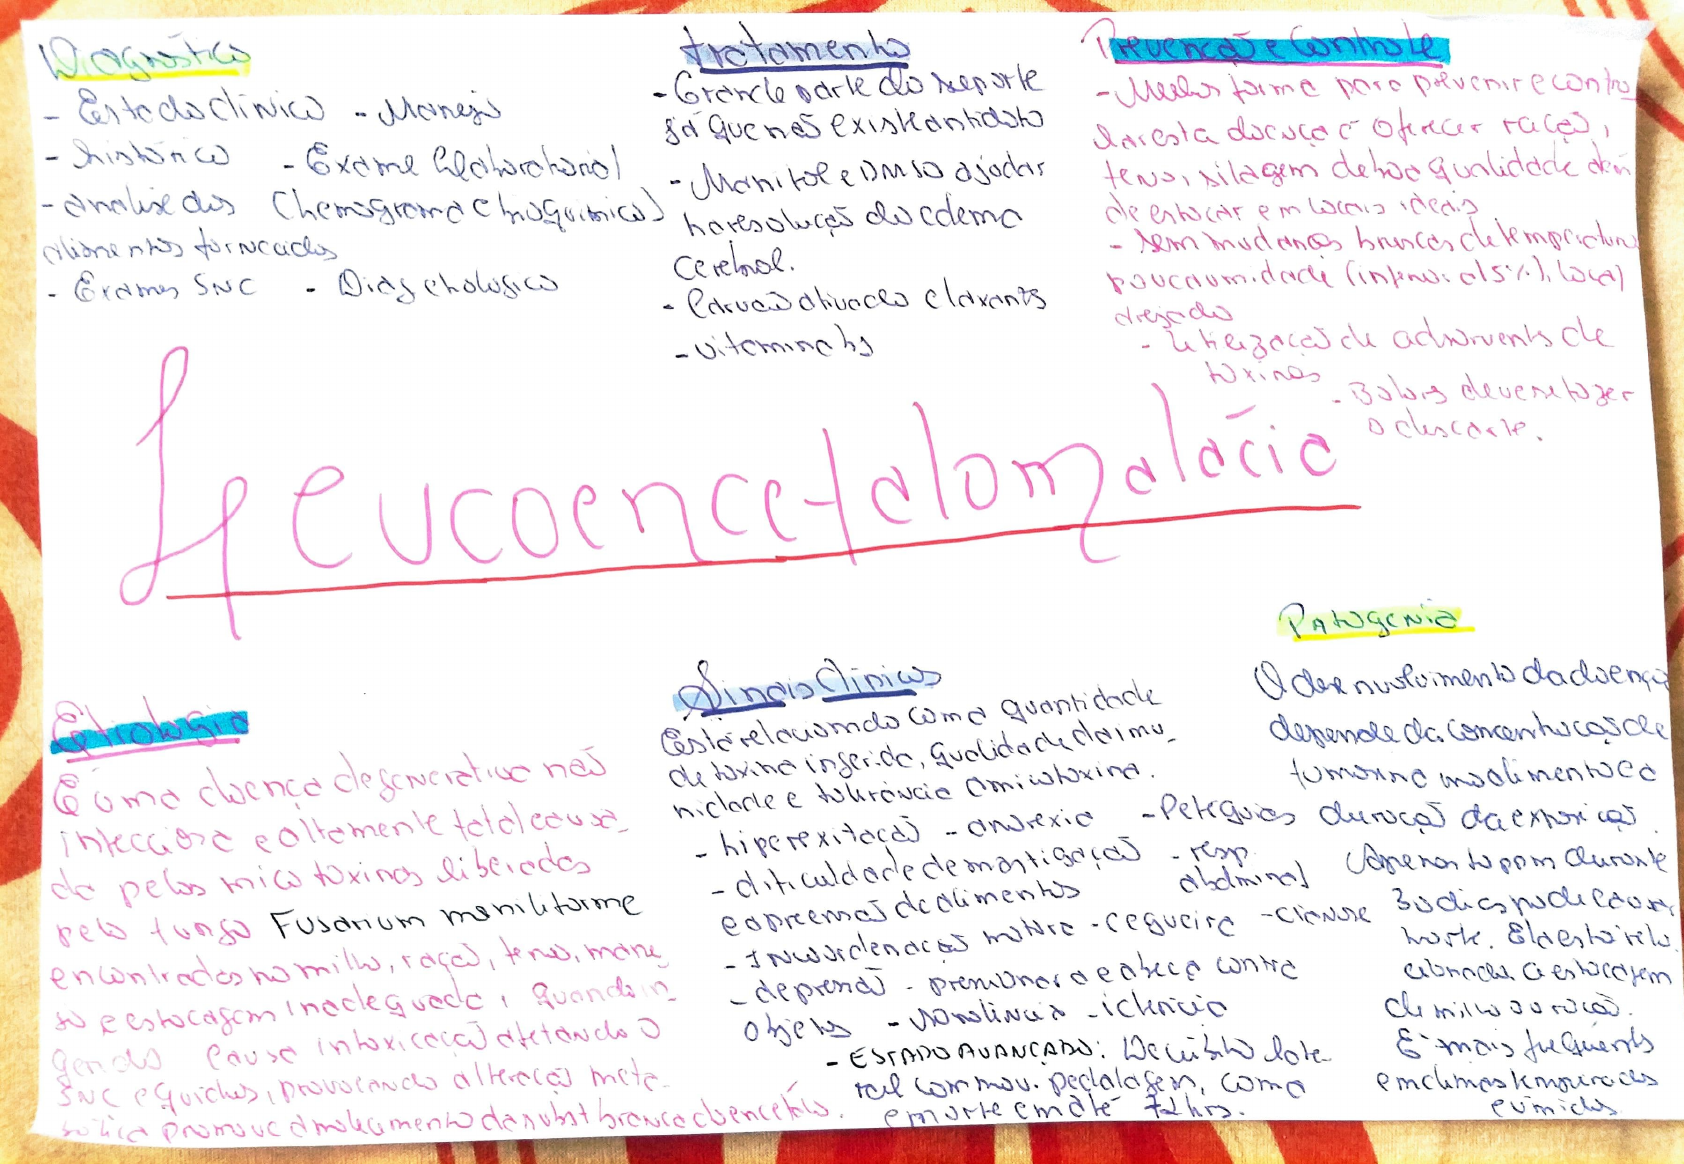 Diagnóstico
- Estado clínico - Manejo
- histórico - Exame laboratorial
- análise dos (hemograma e bioquímico)
alimentos fornecidos
- Exames SNC - Diag
tratamento
- Grande parte do suporte
já que não existe antidoto
- Manitol e DMSO ajudar
na resolução do edema
cerebral.
- Carvão ativado e laxants
- vitamina b1
Prevenção e Controle
- Melhor forma para prevenir e contro
lar esta doença é oferecer ração,
feno, silagem de boa qualidade além
de estocar em locais ideais
- sem mudanças bruscas de temperatura
pouca umidade (inferior a 15%), local
arejado
- Utilização de adsorvents de
toxinas - Bolors deven fazer
o descarte.
Leucoencefalomalácia
Patogenia
O desenvolvimento da doença
depende da concentração de
no alimento e a
duração da exposição.
Apenas 10 ppm durante
30 dias pode causar
morte. Ela está rela
cionada a estocagem
de milho ou ração.
É mais frequente
em climas temperados
e úmidos
Sinais Clínicos
Está relacionado com a quantidade
de toxina ingerida, qualidade da imu-
nidade e tolerância a micotoxina.
- hiperexitação - anorexia - Petéquias
- dificuldade de mastigação - resp.
abdminal
e apreensão de alimentos
- Incoordenação motora - cegueira - cianose
- depressão - pressionar a cabeça contra
objetos - sonolência - icterícia
- ESTADO AVANCADO: Decúbito late
ral com mov. pedalagem, coma
e morte em até 72hrs.
Etiologia
É uma doença degenerativa não
infecciosa e altamente fatal causa-
da pelas micotoxinas liberadas
pelo fungo Fusarium moniliforme
encontrados no milho, ração, feno, mane
jo e estocagem inadequada, quando in-
gerido causa intoxicação afetando o
SNC equídeos, provocando alteração meta-
bólica promove amolecimento da subst branca do encefalo.